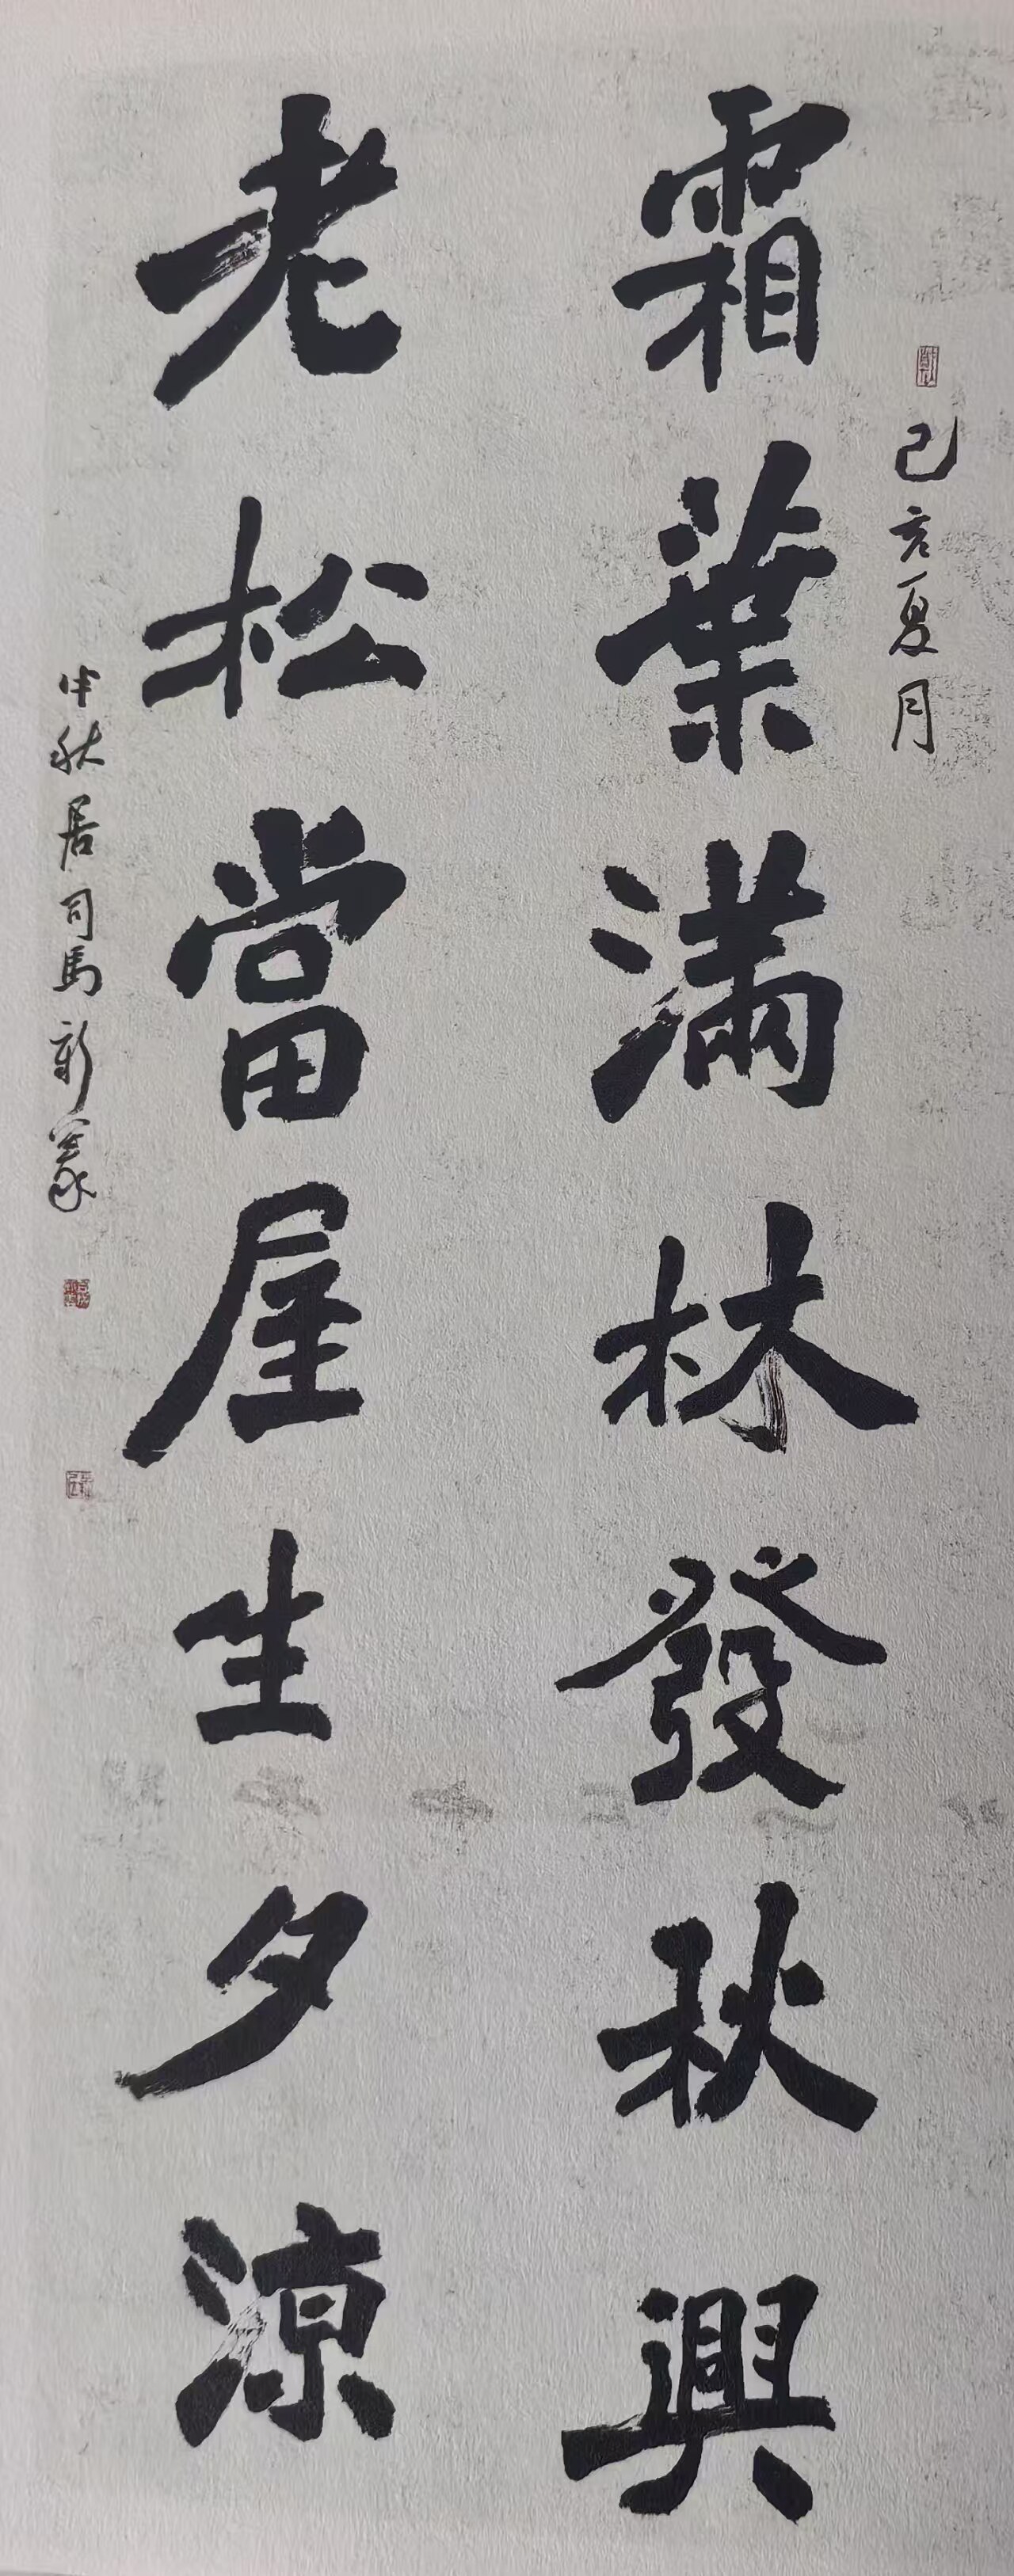 己亥夏月
霜葉滿林發秋興
老松當屋生夕涼
秋居司馬新篆